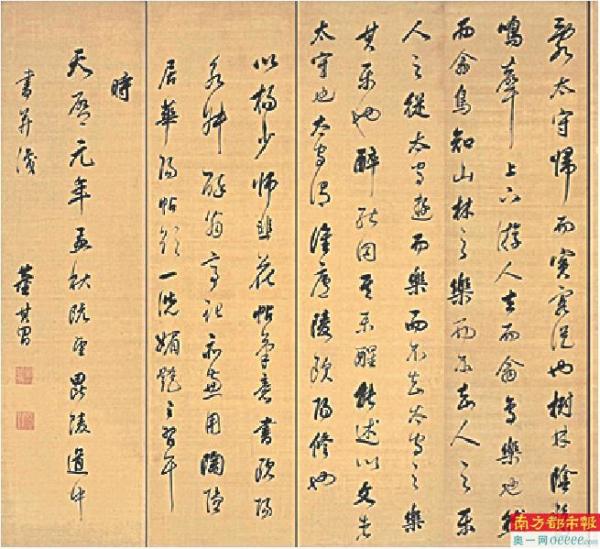 太守歸而賓客從也樹林陰翳
鳴聲上下游人去而禽鳥樂也然
而禽鳥知山林之樂而不知人之樂
人知從太守遊而樂而不知太守之樂
其樂也醉能同其樂醒能述以文者
太守也太守謂誰廬陵歐陽修也
以楊少師韭花帖筆意書歐陽
永叔醉翁亭記亦兼用陶隱
居華陽帖欲一洗媚艷之習耳
時
天啓元年孟秋既望毘陵道中
書并識 董其昌
南方都市報
奥一网oeeee.com